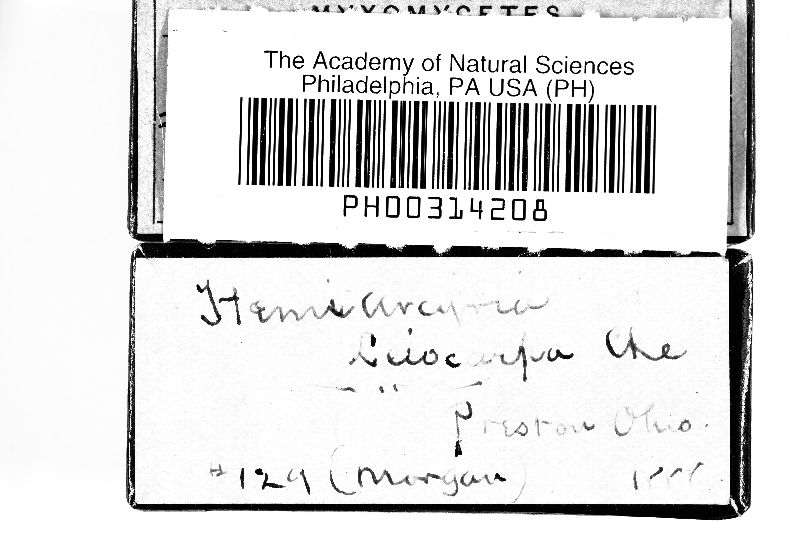 MYXOMYCETES
The Academy of Natural Sciences
Philadelphia, PA USA (PH)
PH00314208
Hemiarcyria
leiocarpa Cke
Preston Ohio.
#129 (Morgan)